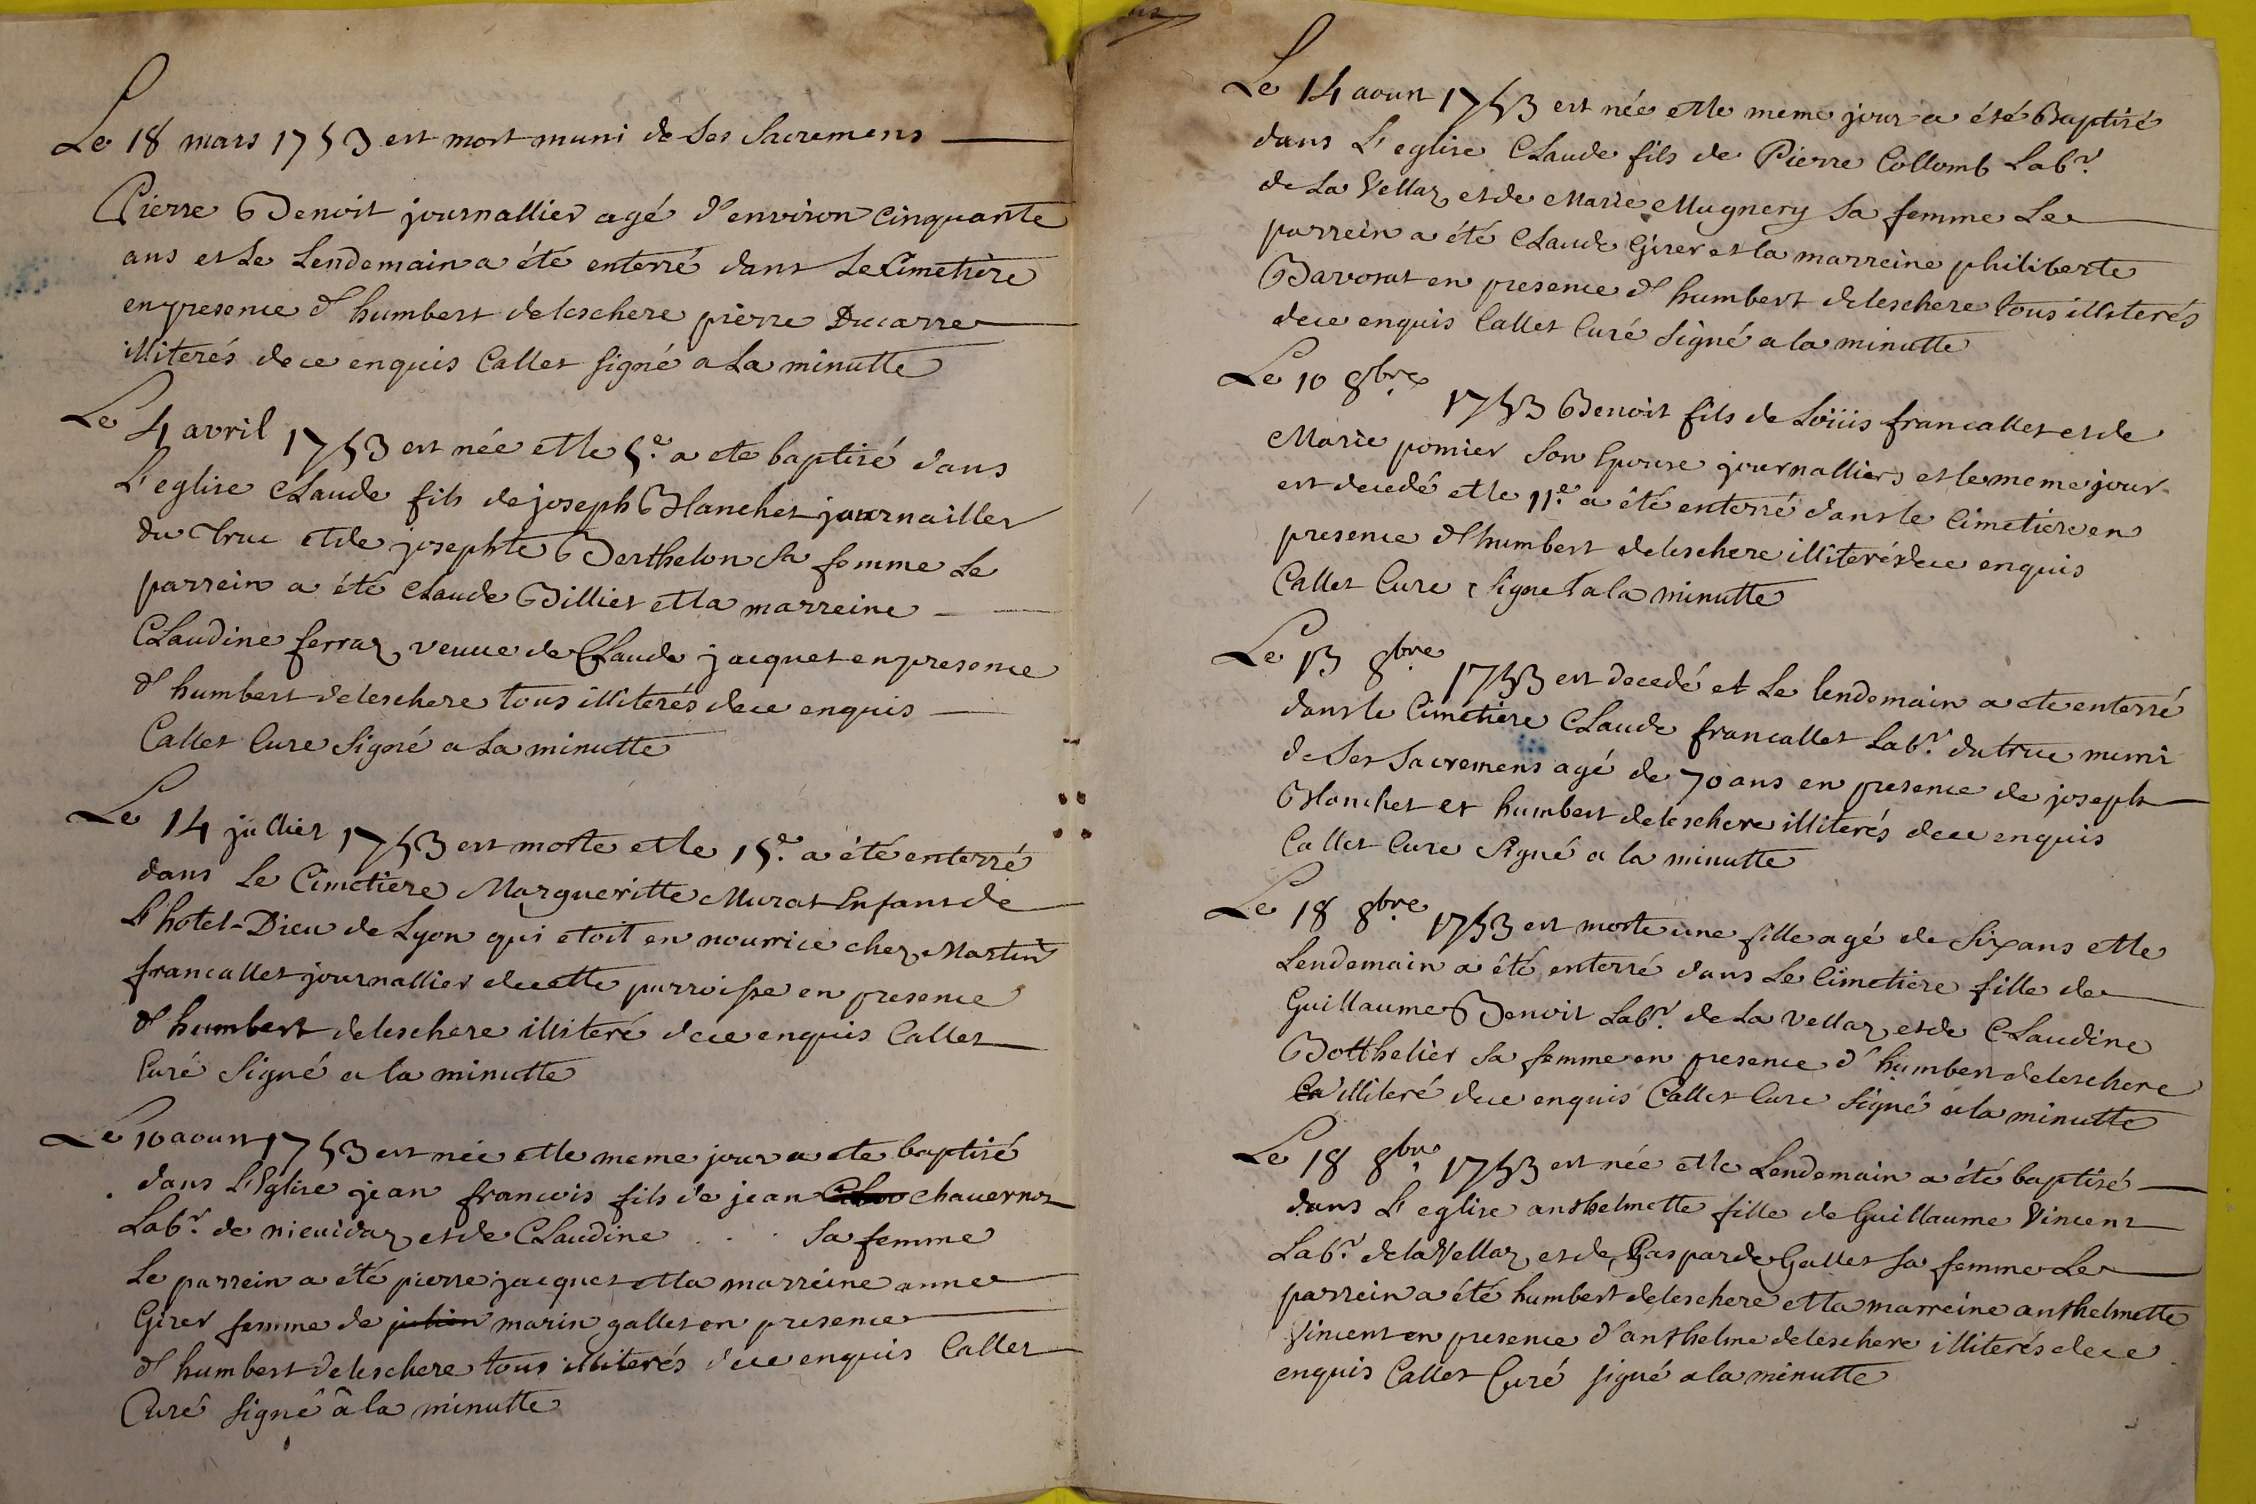 Le 18 mars 1753 est mort muni de ses Sacremens
Pierre Benoit journallier agé d'environ cinquante
ans et Le Lendemain a été enterré dans Le Cimetière
en presence d'humbert deleschere pierre Ducarre
illiterés de ce enquis Callet signé a La minutte
Le 4 avril 1753 est née et le 5.e a ete baptisé dans
L'eglise Claude fils de joseph Blanchet journaillier
du Truc et de josephte Berthelon sa femme Le
parrein a été Claude Billiet et la marreine
Claudine ferraz veuve de Claude jacquet en presence
d'humbert deleschere tous illiterés de ce enquis
Callet Cure Signé a La minutte
Le 14 jullier 1753 est morte et le 15.e a été enterré
dans Le Cimetiere Margueritte Murat Enfant de
L'hotel-Dieu de Lyon qui etoit en nourrice chez Martin
francallet journallier de cette parroisse en presence
d'humbert deleschere illiteré de ce enquis Callet
Curé Signé a la minutte
Le 10 aoust 1753 est née et le meme jour a ete baptisé
dans L'Eglise jean francois fils de jean chavernoz
Lab.r de nieuidaz et de Claudine . . . Sa femme
Le parrein a été pierre jacquet et la marreine anne
Girer femme de julien marin gallet en presence
d'humbert deleschere tous illiterés de ce enquis Callet
Curé signé à la minutte
Le 14 aoust 1753 est née et le meme jour a été Baptisé
dans L'eglise Claude fils de Pierre Collomb Lab.r
de La Vellaz et de Marie Mugnery Sa femme Le
parrein a été Claude Girer et la marreine philiberte
Bavorat en presence d'humbert deleschere tous illiterés
de ce enquis Callet Curé signé a la minutte
Le 10 8bre 1753 Benoit fils de Loüis francallet et de
Marie pomier Son Epouse journalliers et le meme jour
est decedé et le 11.e a été enterré dans le Cimetiere en
presence d'humbert deleschere illiteré de ce enquis
Callet Cure Signe a la minutte
Le 13 8bre 1753 est decedé et Le lendemain a ete enterré
dans le Cimetière Claude francallet Lab.r du truc muni
de Ses Sacremens agé de 70 ans en presence de joseph
Blanchet et humbert deleschere illiterés de ce enquis
Callet Cure Signé a la minutte
Le 18 8bre 1753 est morte une fille agé de Six ans et le
Lendemain a été enterré dans Le Cimetiere fille de
Guillaume Benoit Lab.r de La Vellaz et de Claudine
Botthelier Sa femme en presence d'humbert deleschere
Ca illiteré de ce enquis Callet Cure Signé a la minutte
Le 18 8bre 1753 est née et le Lendemain a été baptisé
dans L'eglise anthelmette fille de Guillaume Vincent
Lab.r de la Vellaz et de Gasparde Gallet sa femme Le
parrein a été humbert deleschere et la marreine anthelmette
Vincent en presence d'anthelme deleschere illiterés de ce
enquis Callet Curé signé a la minutte